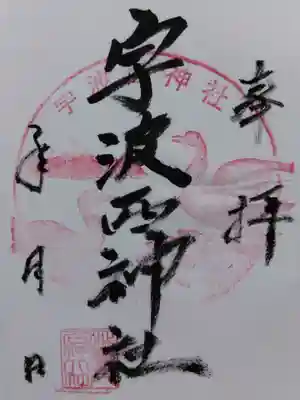 奉拝
宇波西神社
年月日
宇波神社